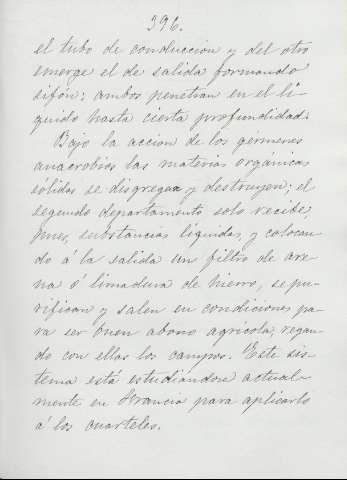 396.
el tubo de conduccion y del otro
emerge el de salida formando
sifón; ambos penetran en el li-
quido hasta cierta profundidad.
Bajo la accion de los gérmenes
anaerobios las materias orgánicas
sólidas se disgregan y destruyen; el
segundo departamento solo recibe,
pues, substancias liquidas, y colocan-
do á la salida un filtro de are-
na ó limadura de hierro, se pu-
rifican y salen en condiciones pa-
ra ser buen abono agricola, regan-
do con ellas los campos. Este sis-
tema está estudiándose actual-
mente en Francia para aplicarlo
á los cuarteles.